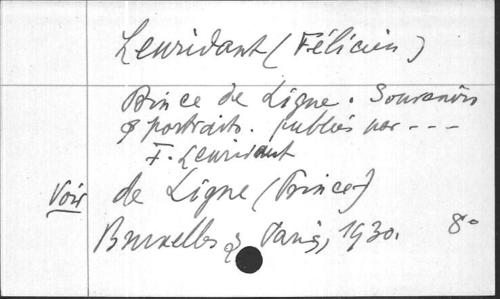 Leuridant (Félicien)
Prince de Ligne. Souvenirs
& portraits. publiés par ---
F. Leuridant
Voir de Ligne (Prince)
Bruxelles & Paris, 1930. 8°